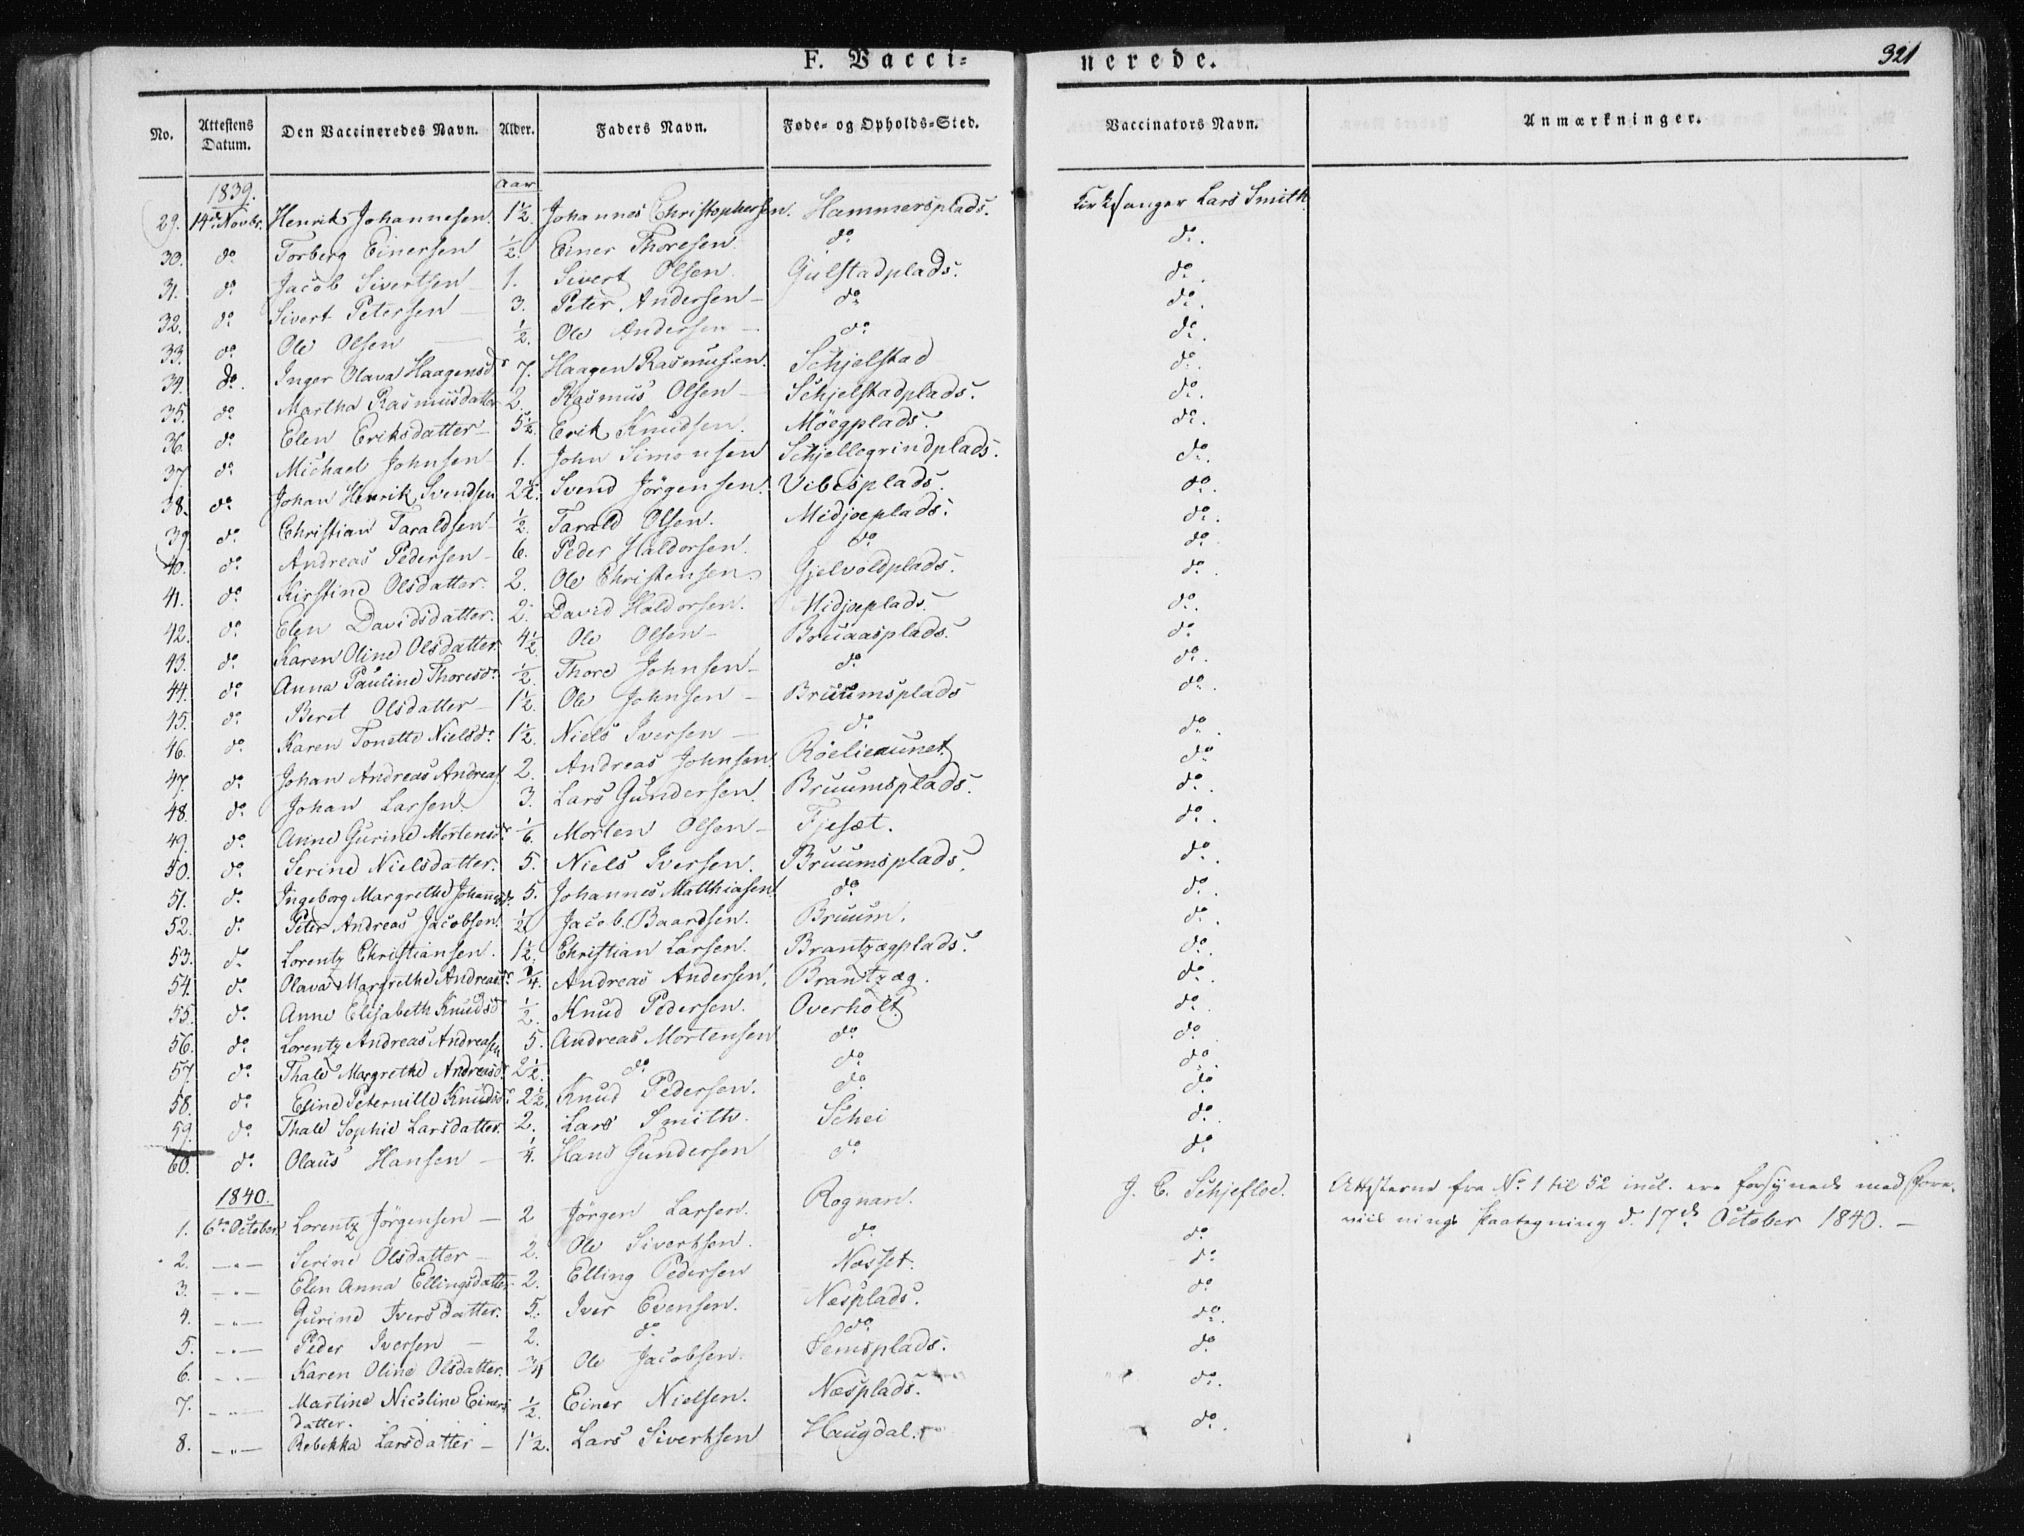 F. Vacci= nerede. 321
No. Attestens Datum. Den Vaccineredes Navn. Alder. Faders Navn. Føde- og Opholds-Sted. Vaccinators Navn. Anmærkninger.
1839. Aar
29. 14de Novbr. Henrik Johannesen. 1½. Johannes Christophersen. Hammersplads. Kirkesanger Lars Smith.
30. do Torberg Einersen ½. Einer Thoresen. do do.
31. do Jacob Sivertsen 1. Sivert Olsen. Gulstadplads. do.
32. do Sivert Petersen — 3. Peter Andersen — do do.
33. do Ole Olsen — ½. Ole Andersen — do do.
34. do. Inger Olava Haagensdr 7. Haagen Rasmussen. Schjelstad do.
35. do Martha Rasmusdatter 2. Rasmus Olsen — Schjelstadplads. do.
36. do Elen Eriksdatter — 5½. Erik Knudsen. Möegplads. do.
37. do Michael Johnsen 1. John Simonsen Schjellegrindplads. do.
38. do Johan Henrik Svendsen 2½. Svend Jörgensen. Vibesplads. do.
39. do Christian Taraldsen — ½. Tarald Olsen. Midjoeplads. do.
40. do Andreas Pedersen — 6. Peder Haldorsen. do do.
41. do Kirstine Olsdatter. 2. Ole Christensen. Gjelvoldplads. do.
42. do Elen Davidsdatter. 2. David Haldorsen. Midjoeplads. do.
43. do Karen Oline Olsdatter. 4½. Ole Olsen — Bruaasplads. do
44. do Anna Pauline Thoresdr ½. Thore Johnsen — do do.
45. do Beret Olsdatter — 1½. Ole Johnsen — Bruumsplads do.
46. do Karen Tonette Nielsdr 1½. Niels Iversen — do do.
47. do Johan Andreas Andreas. 2. Andreas Johnsen Röelieaunet do
48. do Johan Larsen. 3. Lars Gundersen. Bruumsplads. do.
49. do Anne Gurine Mortensdr 1/6 Morten Olsen — Fjesæt. do.
50. do Serine Nielsdatter. 5. Niels Iversen. Bruumsplads. do.
51. do Ingeborg Margrethe Johannesdr. 5. Johannes Matthiasen. do do.
52. do Peter Andreas Jacobsen. ½ Jacob Baardsen. Bruum. do.
53. do Lorentz Christiansen. 1½. Christian Larsen. Brantzægplads. do.
54. do Olava Margrethe Andreasdr ¾. Andreas Andersen. Brantzæg. do
55. do Anne Elisabeth Knudsdr ½. Knud Pedersen. Overholt do
56. do Lorentz Andreas Andreasen 5. Andreas Mortensen do do
57. do Thale Margrethe Andreasdr 2½. do do do.
58. do Eline Peternille Knudsdr 2½. Knud Pedersen. do do.
59. do Thale Sophie Larsdatter. 2. Lars Smith. Schei do.
60. do Olaus Hansen — ¼. Hans Gundersen do do
1840. J. C. Schjefloe. Attesterne fra No 1 til 52 incl. ere forsynede med Fore-
1. 6te October. Lorentz Jörgensen — 2 Jörgen Larsen. Rognan. viisnings Paategning d. 17de October 1840. —
2. — " — Serine Olsdatter — 2. Ole Sivertsen. do do
3. — " — Elen Anna Ellingsdatter. 2. Elling Pedersen Næsset. do
4. — " — Gurine Iversdatter. 5. Iver Evensen. Næsplads. do
5. — " — Peder Iversen — 2. do do do.
6. — " — Karen Oline Olsdatter. ¾ Ole Jacobsen. Semsplads. do
7. — " — Martine Nicoline Einers ½. Einer Nielsen. Næsplads. do.
datter.
8. — " — Rebekka Larsdatter — 1½. Lars Sivertsen Haugdal. do.